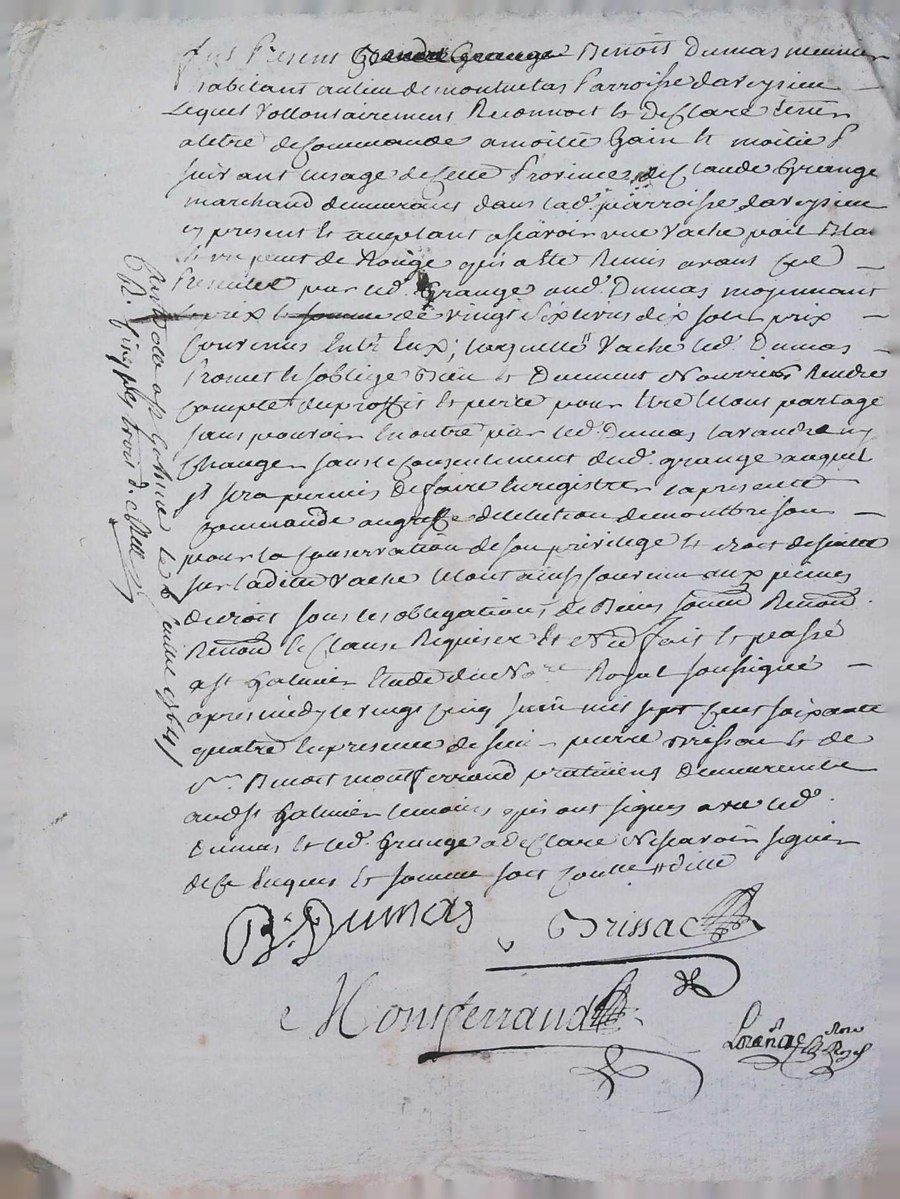 fut Present Benoit Dumas meunier
habitant au lieu de Parroisse daveysieu
Lequel Vollontairement Reconnoit et Declare tenir
a titre de Commande a moitié Gain et moitié P
suivant lusage de Cette Province, de Claude Grange
marchand demeurant dans lad. parroisse daveysieu
cy present et aceptant asçavoir une Vache poil Bla
et un peut de Rouge qui a été Remis avant Ces
Presentes par led. Grange aud. Dumas moyennant
le prix de vingt six livres dix sols prix
Convenus Entre Eux ; laquelle Vache led. Dumas
Promet et soblige Bien et Duement Nourrir Rendre
Compte du proffit et perte pour Etre le tout partagé
sans pouvoir Etre par led. Dumas la vandre ny
Changer sans le Consentement dud. grange auquel
il sera permis de faire Enregistrer la presente
Commande au greffe de lelection de montbrison
pour la Conservation de son privilege et droit de suitte
sur laditte Vache le tout ainsy Convenu aux peines
de droit sous les obligations, de Biens soumd Renond.
Renond. et Clause Requises Et fait et passé
a st Galmier Etude du No.re Royal soussigné
apres midy le vingt Cinq juin mil sept Cent soixante
quatre En presence de sieur pierre Brissac et de
sr. Benoit montferrand praticiens demeurants
aud st Galmier temoins qui ont signés avec led.
Dumas et led. Grange a declaré Ne sçavoir signer
de Ce Enquis et sommé soit Controllé
Bt. Dumas
Brissac
Montferrand
Nore
Royal
Controlé a st Galmier le 1764
R. Cinq trois d.